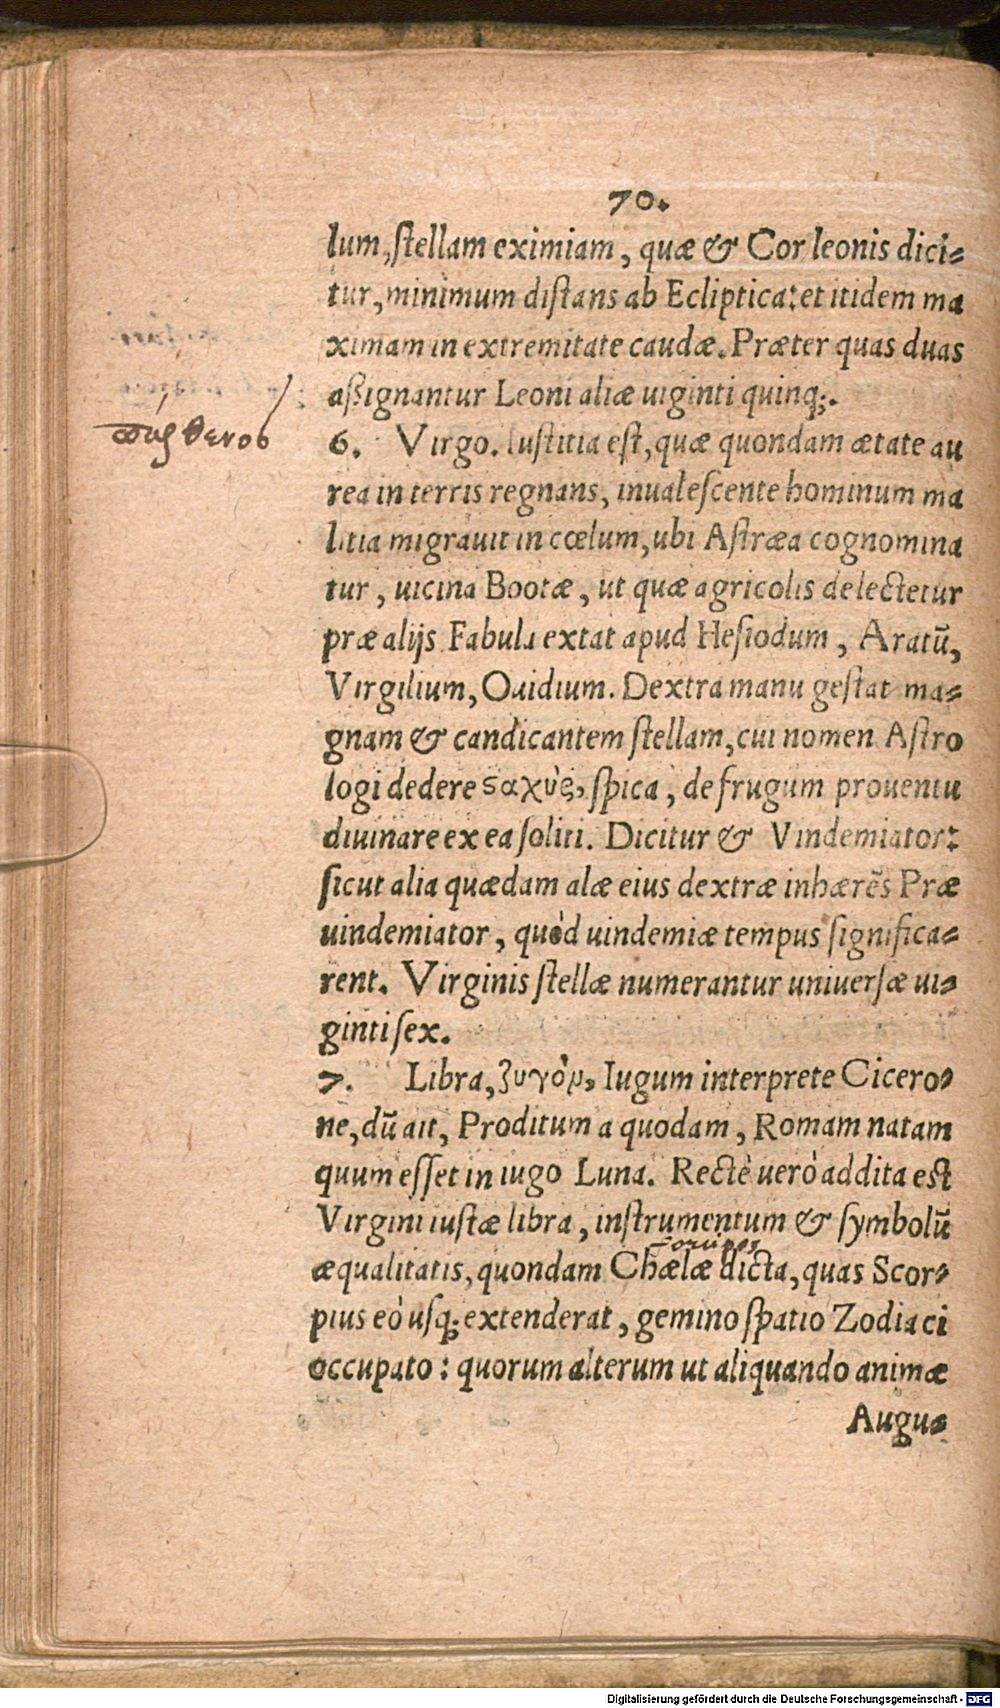 70.
lum, stellam eximiam, quæ & Cor leonis dici-
tur, minimum distans ab Ecliptica: et itidem ma
ximam in extremitate caudæ. Præter quas duas
assignantur Leoni aliæ uiginti quinq;.
6. Virgo. Iustitia est, quæ quondam ætate au
rea in terris regnans, inualescente hominum ma
litia migrauit in cœlum, ubi Astræa cognomina
tur, uicina Bootæ, ut quæ agricolis delectetur
præ alijs Fabula extat apud Hesiodum, Aratū,
Virgilium, Ouidium. Dextra manu gestat ma-
gnam & candicantem stellam, cui nomen Astro
logi dedere ϛαχὺς, spica, de frugum prouentu
diuinare ex ea soliti. Dicitur & Vindemiator:
sicut alia quædam alæ eius dextræ inhærēs Præ
uindemiator, quòd uindemiæ tempus significa-
rent. Virginis stellæ numerantur uniuersæ ui-
ginti sex.
7. Libra, ζυγὸμ, Iugum interprete Cicero-
ne, dū ait, Proditum a quodam, Romam natam
quum esset in iugo Luna. Rectè uerò addita est
Virgini iustæ libra, instrumentum & symbolū
æqualitatis, quondam Chælæ dicta, quas Scor-
pius eò usq; extenderat, gemino spatio Zodiaci
occupato: quorum alterum ut aliquando animæ
Augu-
Digitalisierung gefördert durch die Deutsche Forschungsgemeinschaft - DFG